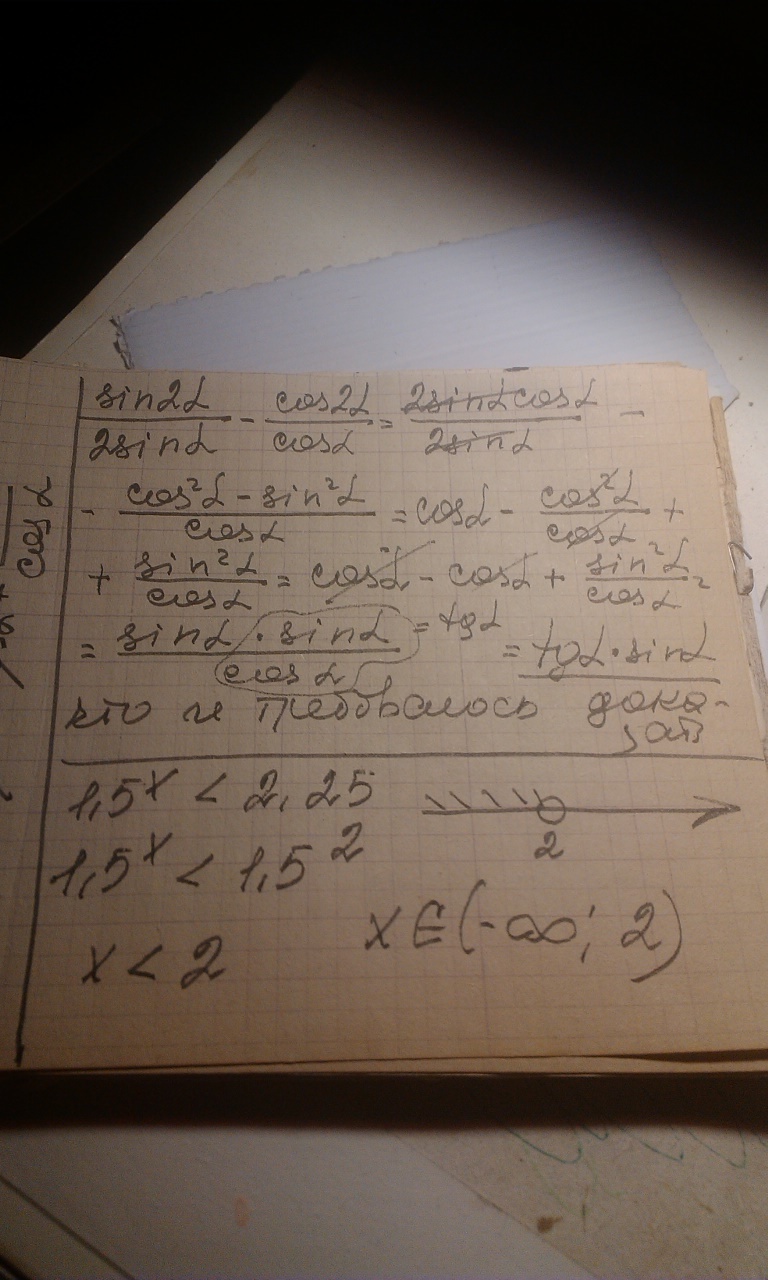 sin2α/2sinα - cos2α/cosα = 2sinαcosα/2sinα -
- cos²α - sin²α/cosα = cosα - cos²α/cosα +
+ sin²α/cosα = cosα - cosα + sin²α/cosα =
= sinα · sinα/cosα = tgα = tgα · sinα
что и требовалось дока-
зать
1,5ˣ < 2,25
1,5ˣ < 1,5²
2
x < 2 x ∈ (-∞; 2)
cosα